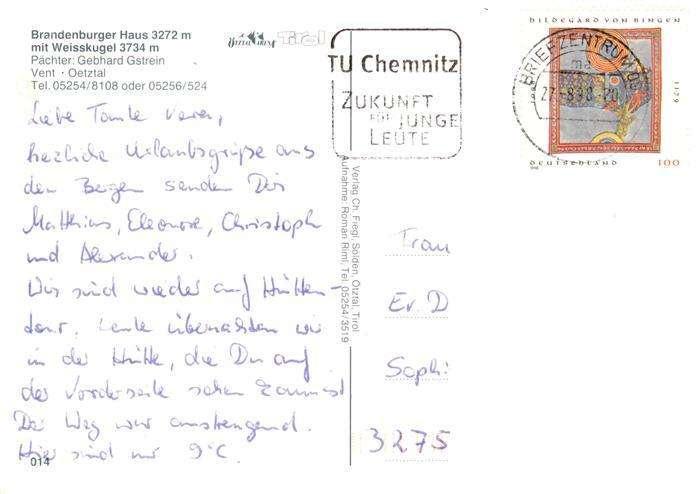 Brandenburger Haus 3272 m
mit Weisskugel 3734 m
Pächter: Gebhard Gstrein
Vent · Oetztal
Tel. 05254/8108 oder 05256/524
ÖTZTAL ARENA Tirol
Liebe Tante Veren,
herzliche Urlaubsgrüße aus
den Bergen senden Dir
Matthias, Eleonore, Christoph
und Alexander.
Wir sind wieder auf Hütten-
tour. Heute übernachten wir
in der Hütte, die Du auf
der Vorderseite sehen kannst
Der Weg war anstrengend.
Hier sind nur 9°C.
014
Verlag Ch. Fiegl, Sölden, Ötztal, Tirol
Aufnahme: Roman Riml, Tel. 05254/3519
TU Chemnitz
ZUKUNFT
FÜR JUNGE
LEUTE
BRIEFZENTRUM 09
27.-8.98-20
HILDEGARD VON BINGEN
1098
1179
DEUTSCHLAND 100
1998
Frau
Ev. D
Soph:
3275